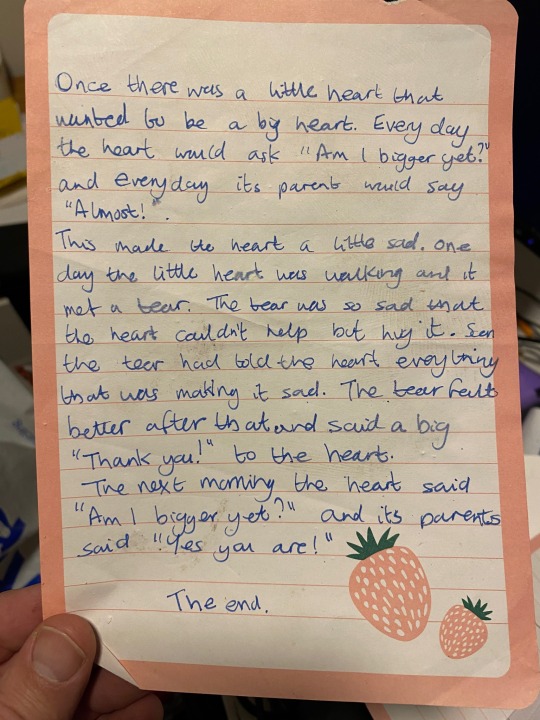 Once there was a little heart that
wanted to be a big heart. Every day
the heart would ask "Am I bigger yet?"
and everyday its parent would say
"Almost!".
This made the heart a little sad. One
day the little heart was walking and it
met a tear. The tear was so sad that
the heart couldn't help but hug it. Soon
the tear had told the heart everything
that was making it sad. The tear felt
better after that and said a big
"Thank you!" to the heart.
The next morning the heart said
"Am I bigger yet?" and its parents
said "Yes you are!"
The end.